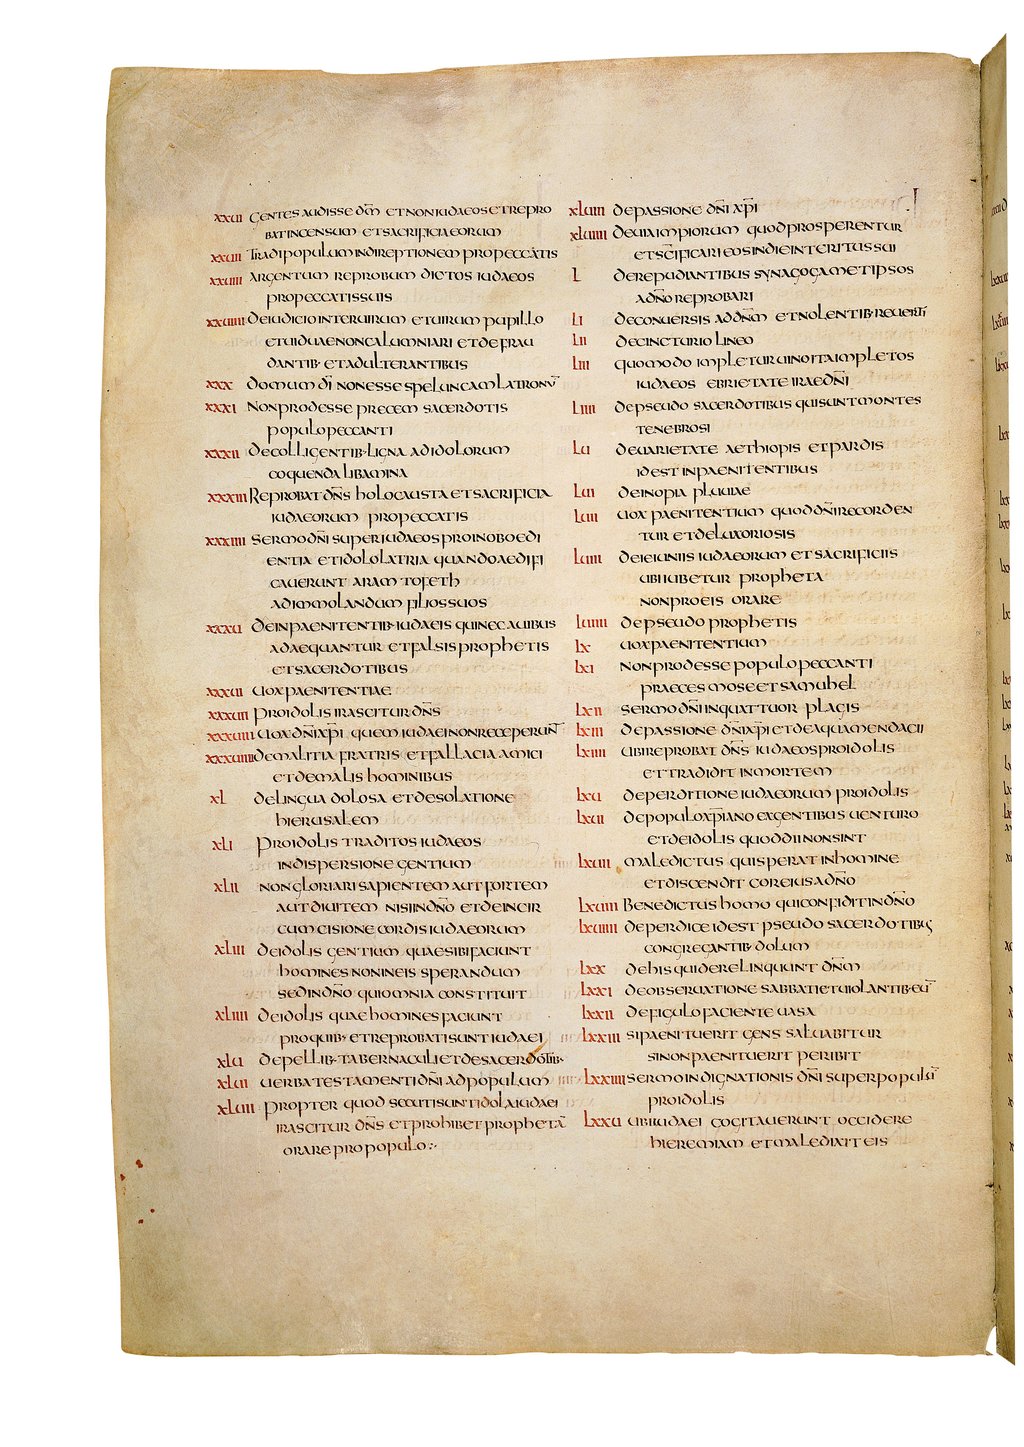 xxvii gentes audisse dm̄ et non iudaeos et repro
bat incensum et sacrificia eorum
xxviii Tradi populum in direptionem pro peccatis
xxviiii argentum reprobum dictos iudaeos
pro peccatis suis
de iudicio inter uirum et uirum pupillo
et uidua non calumniari et de frau
dantib· et adulterantibus
xxx domum dī non esse speluncam latronū
xxxi Non prodesse precem sacerdotis
populo peccanti
xxxii de colligentib· ligna ad idolorum
coquenda libamina
xxxiii Reprobat dn̄s holocausta et sacrificia
iudaeorum pro peccatis
xxxiiii sermo dn̄i super iudaeos pro inoboedi
entia et idololatria quando aedifi
cauerunt aram tofeth
ad immolandum filios suos
xxxu de inpaenitentib· iudaeis qui nec auibus
adaequantur et falsis prophetis
et sacerdotibus
xxxui uox paenitentiae
xxxuii pro idolis irascitur dn̄s
xxxuiii uox dn̄i xp̄i quem iudaei non receperun̄
xxxuiiii de malitia fratris et fallacia amici
et de malis hominibus
xl de lingua dolosa et desolatione
hierusalem
xli pro idolis traditos iudaeos
in dispersione gentium
xlii non gloriari sapientem aut fortem
aut diuitem nisi in dn̄o et de incir
cumcisione cordis iudaeorum
xliii de idolis gentium quae sibi faciunt
homines non in eis sperandum
sed in dn̄o qui omnia constituit
xliiii de idolis quae homines faciunt
pro quib· et reprobati sunt iudaei
xlu de pellib· tabernaculi et de sacerdotib·
xlui uerba testamenti dn̄i ad populum
xluii propter quod secuti sunt idola iudaei
irascitur dn̄s et prohibet prophetā
orare pro populo:·
xluiii de passione dn̄i xp̄i
xluiiii de uia impiorum quod prosperentur
et sc̄ificari eos in die interitus sui
L de repudiantibus synagogam et ipsos
a dn̄o reprobari
Li de conuersis ad dn̄m et nolentib· reuerti
Lii de cincturio lineo
Liii quomodo impletur uino ita impletos
iudaeos ebrietate irae dn̄i
Liiii de pseudo sacerdotibus qui sunt montes
tenebrosi
Lu de uarietate aethiopis et pardis
id est inpaenitentibus
Lui de inopia pluuiae
Luii uox paenitentium quod dn̄i recorden
tur et de luxoriosis
Luiii de ieiuniis iudaeorum et sacrificiis
ubi iubetur propheta
non pro eis orare
Luiiii de pseudo prophetis
Lx uox paenitentium
Lxi Non prodesse populo peccanti
praeces mose et samuhel
Lxii sermo dn̄i in quattuor plagis
Lxiii de passione dn̄i xp̄i et de aqua mendacii
Lxiiii ubi reprobat dn̄s iudaeos pro idolis
et tradidit in mortem
Lxu de perditione iudaeorum pro idolis
Lxui de populo xp̄iano ex gentibus uenturo
et de idolis quod dii non sint
Lxuii maledictus qui sperat in homine
et discendit cor eius a dn̄o
Lxuiii Benedictus homo qui confidit in dn̄o
Lxuiiii de perdice id est pseudo sacerdotibus
congregantib· dolum
Lxx de his qui derelinquunt dn̄m
Lxxi de obseruatione sabbati et uiolantib· eū
Lxxii de figulo faciente uasa
Lxxiii si paenituerit gens saluabitur
si non paenituerit peribit
Lxxiiii sermo indignationis dn̄i super populū
pro idolis
Lxxu ubi iudaei cogitauerunt occidere
hieremiam et maledixit eis